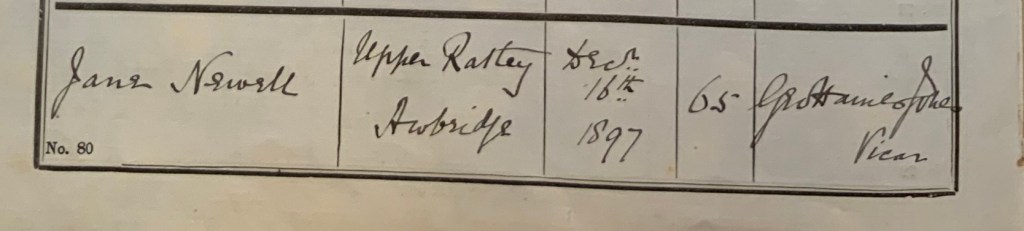 Jane Newell
No. 80
Upper Ratley
Awbridge
Decr.
16th
1897
65
Geo Haines Jones
Vicar